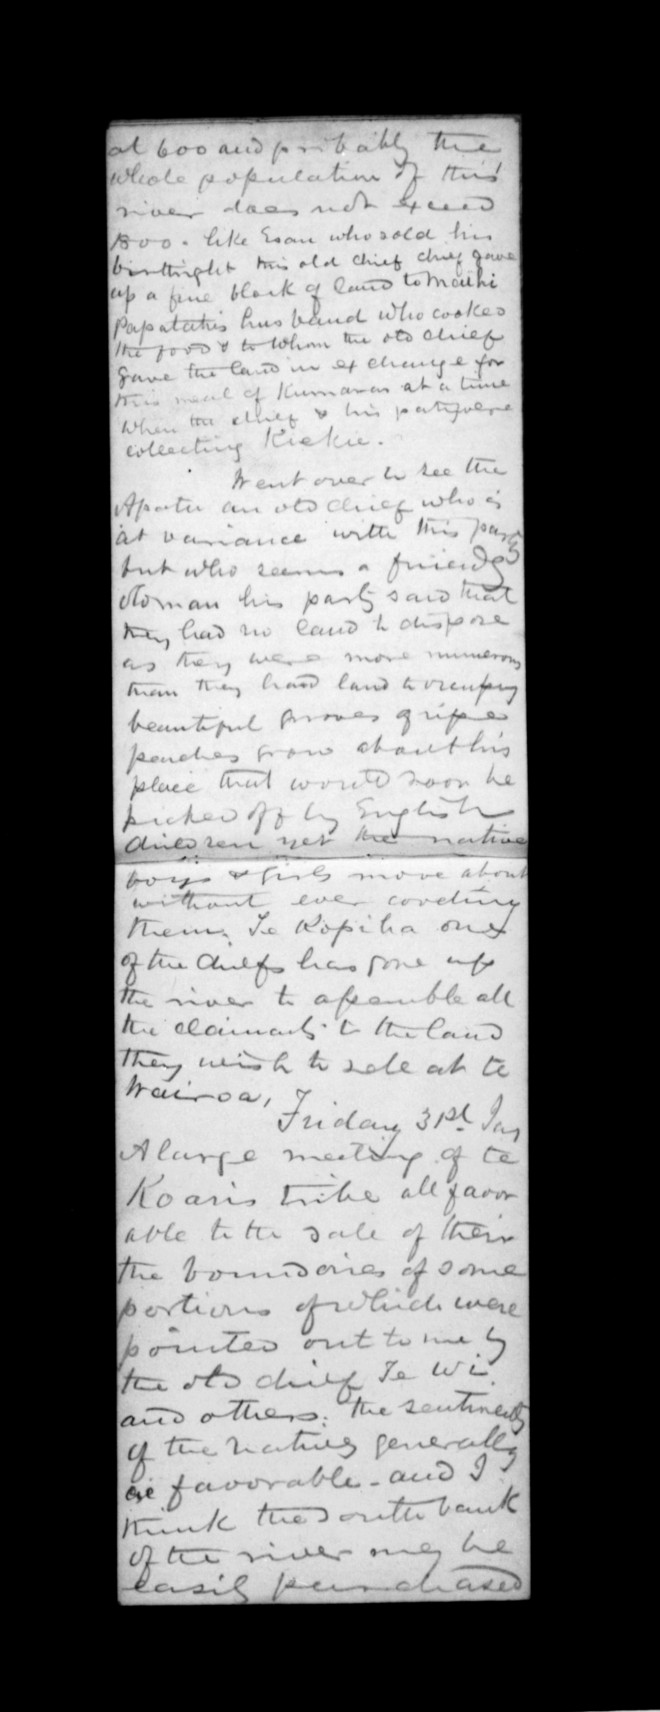 at 600 and probably the
whole population of this
river does not exceed
1800. like Esau who sold his
birthright this old chief chief gave
up a fine block of land to Maihi
Papatahis husband who cooked
the food & to whom the old chief
gave the land in exchange for
this meal of Kumaras at a time
when the chief & his party were
collecting Kiekie.
Went over to see the
Apatu an old chief who is
at variance with this party
but who seems a friendly
old man his party said that
they had no land to dispose
as they were more numerous
than they had land to occupy
beautiful groves of ripe
peaches grow about his
place that would soon be
picked off by English
children yet the native
boys & girls move about
without ever coveting
them. Te Kopiha one
of the chiefs has gone up
the river to assemble all
the claimants to the land
they wish to sell at te
Wairoa,
Friday 31st Jay
A large meeting of te
Koaris tribe all favor
able to the sale of their
the boundaries of some
portions of which were
pointed out to me by
the old chief Te Wi
and others. the sentiments
of the natives generally
are favorable - and I
think the south bank
of the river may be
easily purchased